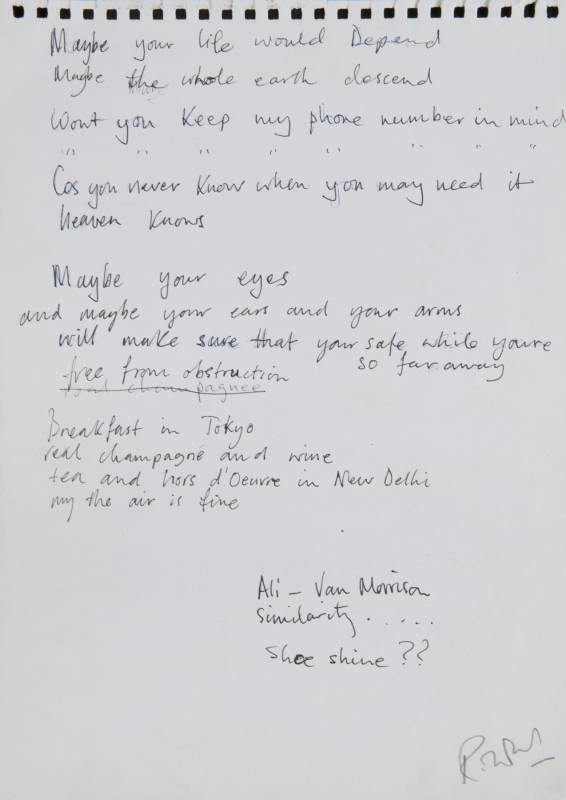 Maybe your life would Depend
Maybe the whole earth descend
Wont you Keep my phone number in mind
" " " " " " " "
Cos you never Know when you may need it
heaven Knows
Maybe your eyes
and maybe your ears and your arms
will make sure that your safe while youre
free from obstruction so far away
real champagnee
Breakfast in Tokyo
real champagne and wine
tea and hors d'Oeuvre in New Delhi
my the air is fine
Ali – Van Morrison
Similarity . . . . .
Shoe shine ??